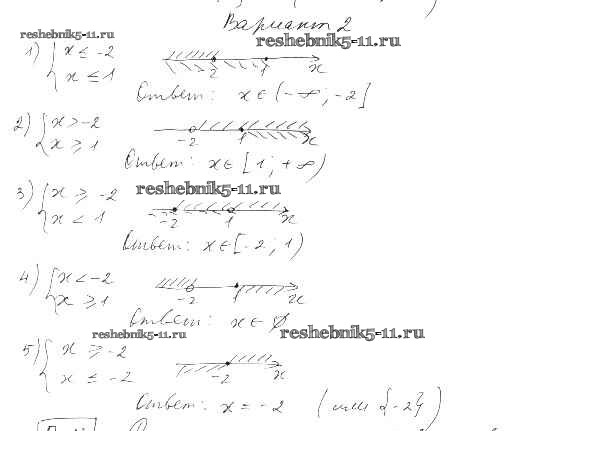 Вариант 2
reshebnik5-11.ru
reshebnik5-11.ru
1) { x ≤ -2
x ≤ 1
-2 1 x
Ответ: x ∈ (-∞; -2]
2) { x > -2
x ≥ 1
-2 1 x
Ответ: x ∈ [1; +∞)
reshebnik5-11.ru
3) { x ≥ -2
x < 1
-2 1 x
Ответ: x ∈ [-2; 1)
4) { x < -2
x ≥ 1
-2 1 x
Ответ: x ∈ ∅
reshebnik5-11.ru
reshebnik5-11.ru
5) { x ≥ -2
x ≤ -2
-2 x
Ответ: x = -2 (или {-2})